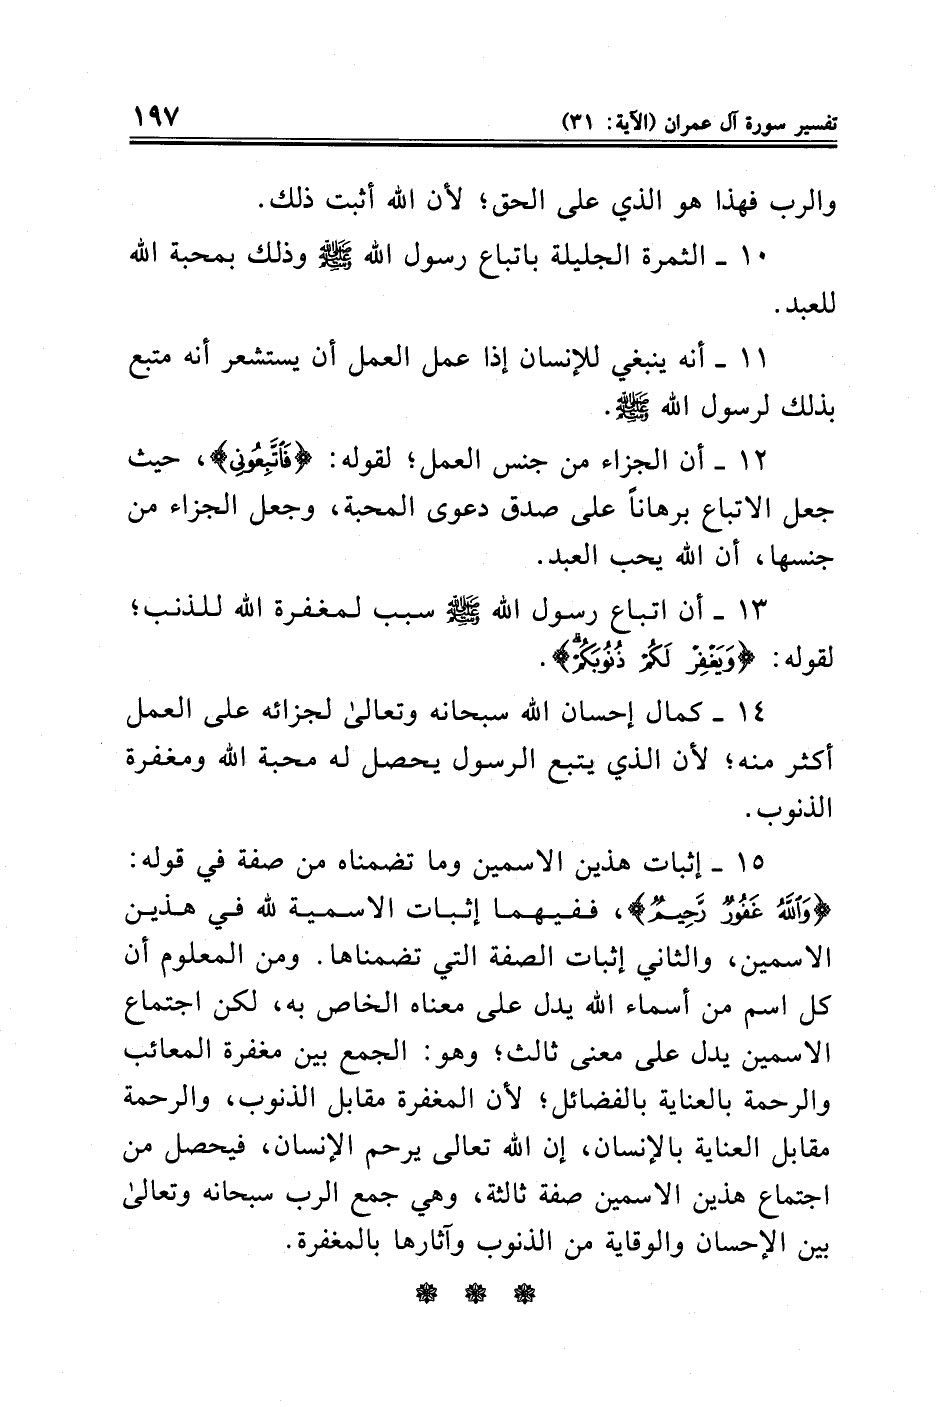 تفسير سورة آل عمران (الآية: ٣١) ١٩٧
والرب فهذا هو الذي على الحق؛ لأن الله أثبت ذلك.
١٠ ـ الثمرة الجليلة باتباع رسول الله ﷺ وذلك بمحبة الله
للعبد.
١١ ـ أنه ينبغي للإنسان إذا عمل العمل أن يستشعر أنه متبع
بذلك لرسول الله ﷺ.
١٢ ـ أن الجزاء من جنس العمل؛ لقوله: ﴿فَاتَّبِعُونِي﴾، حيث
جعل الاتباع برهاناً على صدق دعوى المحبة، وجعل الجزاء من
جنسها، أن الله يحب العبد.
١٣ ـ أن اتباع رسول الله ﷺ سبب لمغفرة الله للذنب؛
لقوله: ﴿وَيَغْفِرْ لَكُمْ ذُنُوبَكُمْۗ﴾.
١٤ ـ كمال إحسان الله سبحانه وتعالىٰ لجزائه على العمل
أكثر منه؛ لأن الذي يتبع الرسول يحصل له محبة الله ومغفرة
الذنوب.
١٥ ـ إثبات هذين الاسمين وما تضمناه من صفة في قوله:
﴿وَاللَّهُ غَفُورٌ رَّحِيمٌ﴾، ففيهما إثبات الاسمية لله في هذين
الاسمين، والثاني إثبات الصفة التي تضمناها. ومن المعلوم أن
كل اسم من أسماء الله يدل على معناه الخاص به، لكن اجتماع
الاسمين يدل على معنى ثالث؛ وهو: الجمع بين مغفرة المعائب
والرحمة بالعناية بالفضائل؛ لأن المغفرة مقابل الذنوب، والرحمة
مقابل العناية بالإنسان، إن الله تعالى يرحم الإنسان، فيحصل من
اجتماع هذين الاسمين صفة ثالثة، وهي جمع الرب سبحانه وتعالىٰ
بين الإحسان والوقاية من الذنوب وآثارها بالمغفرة.